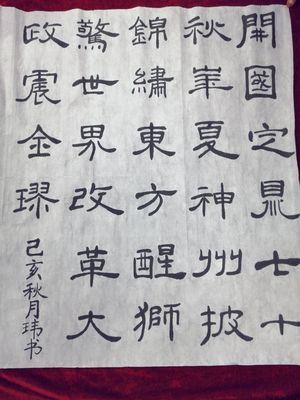 開國定鼎七十
秋華夏神州披
錦繡東方醒獅
驚世界改革大
政震全球
己亥秋月玮书